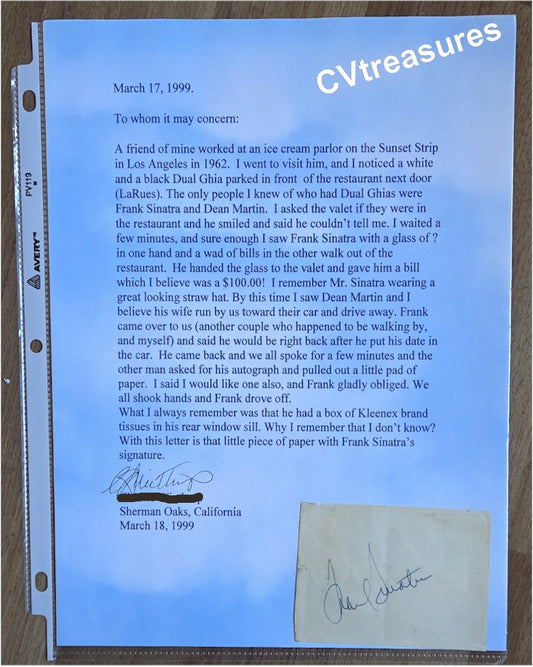 CVtreasures
March 17, 1999.
To whom it may concern:
A friend of mine worked at an ice cream parlor on the Sunset Strip
in Los Angeles in 1962. I went to visit him, and I noticed a white
and a black Dual Ghia parked in front of the restaurant next door
(LaRues). The only people I knew of who had Dual Ghias were
Frank Sinatra and Dean Martin. I asked the valet if they were in
the restaurant and he smiled and said he couldn't tell me. I waited a
few minutes, and sure enough I saw Frank Sinatra with a glass of ?
in one hand and a wad of bills in the other walk out of the
restaurant. He handed the glass to the valet and gave him a bill
which I believe was a $100.00! I remember Mr. Sinatra wearing a
great looking straw hat. By this time I saw Dean Martin and I
believe his wife run by us toward their car and drive away. Frank
came over to us (another couple who happened to be walking by,
and myself) and said he would be right back after he put his date in
the car. He came back and we all spoke for a few minutes and the
other man asked for his autograph and pulled out a little pad of
paper. I said I would like one also, and Frank gladly obliged. We
all shook hands and Frank drove off.
What I always remember was that he had a box of Kleenex brand
tissues in his rear window sill. Why I remember that I don't know?
With this letter is that little piece of paper with Frank Sinatra's
signature.
Sherman Oaks, California
March 18, 1999
Frank Sinatra
AVERY™
PV119